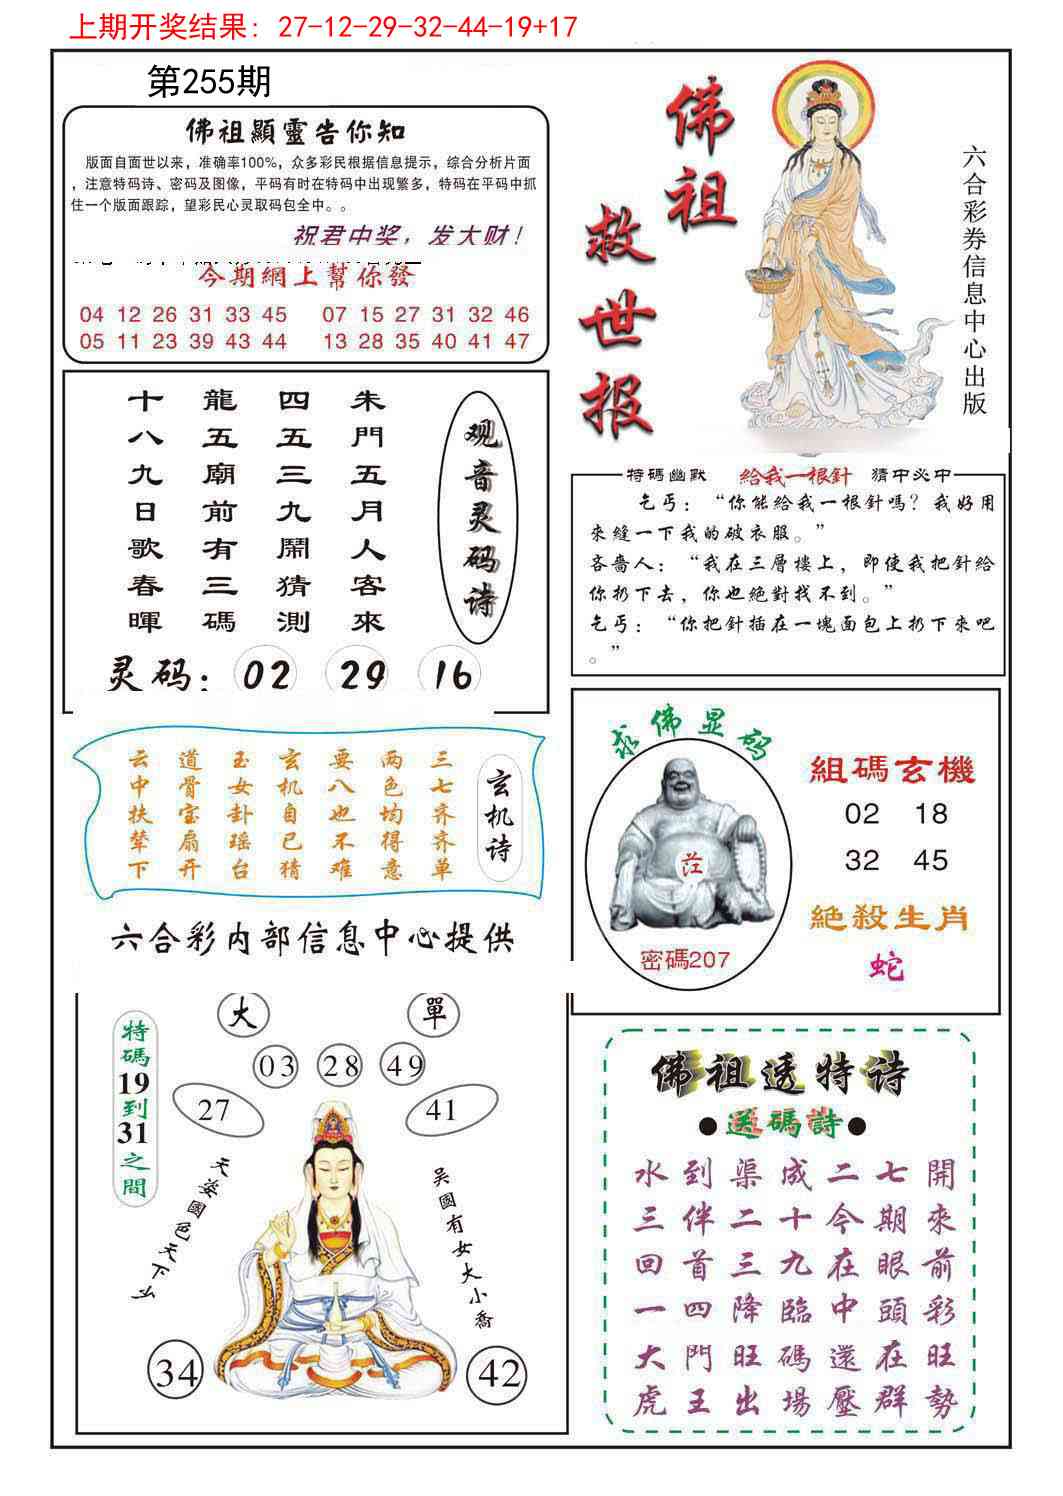 上期开奖结果: 27-12-29-32-44-19+17
第255期
佛祖顯靈告你知
版面自面世以来，准确率100%，众多彩民根据信息提示，综合分析片面
，注意特码诗、密码及图像，平码有时在特码中出现繁多，特码在平码中抓
住一个版面跟踪，望彩民心灵取码包全中。。
祝君中奖，发大财！
今期網上幫你發
04 12 26 31 33 45 07 15 27 31 32 46
05 11 23 39 43 44 13 28 35 40 41 47
佛祖
救世报
六合彩券信息中心出版
观音灵码诗
朱門五月人客來
四五三九鬧猜測
龍五廟前有三碼
十八九日歌春暉
灵码：02 29 16
特碼幽默 給我一根針 猜中必中
乞丐：“你能给我一根針嗎？我好用
來縫一下我的破衣服。”
吝嗇人：“我在三層樓上，即使我把針给
你扔下去，你也絕對找不到。”
乞丐：“你把針插在一塊面包上扔下來吧
。”
玄机诗
三七齐齐单
两色均得意
要八也不难
玄机自已猜
玉女卦瑶台
道骨宝扇开
云中扶辇下
六合彩内部信息中心提供
求佛显码
茳
密碼207
組碼玄機
02 18
32 45
絕殺生肖
蛇
特碼19到31之間
大 單
03 28 49
27 41
天姿國色天下少
吴國有女大小喬
34 42
佛祖透特诗
●送碼詩●
水到渠成二七開
三伴二十今期來
回首三九在眼前
一四降臨中頭彩
大門旺碼還在旺
虎王出場壓群勢